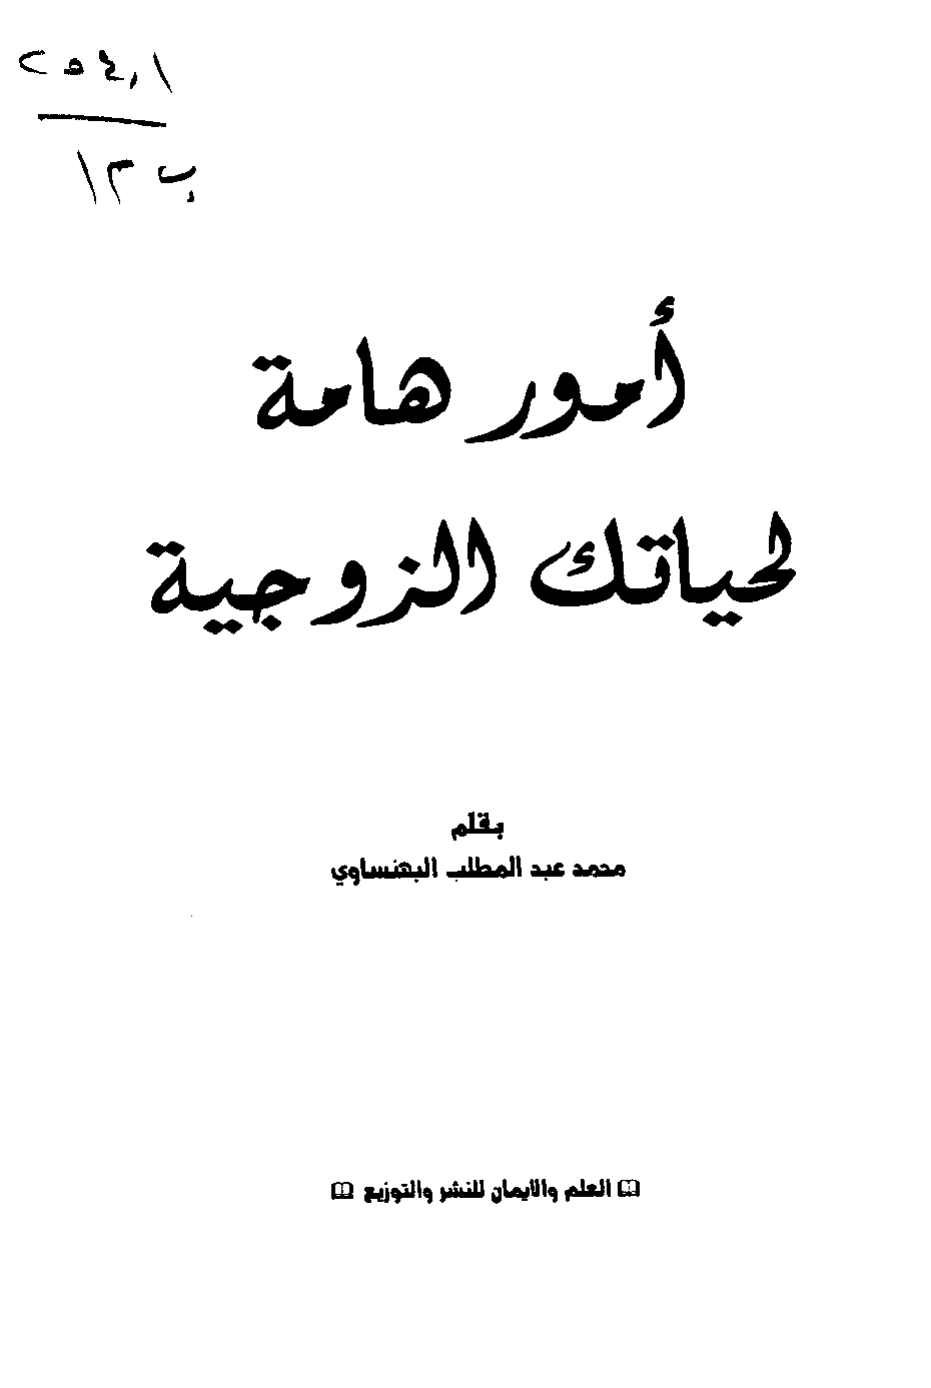 ٢٥٤,١
أمور هامة
لحياتك الزوجية
بقلم
محمد عبد المطلب البهنساوي
العلم والايمان للنشر والتوزيع